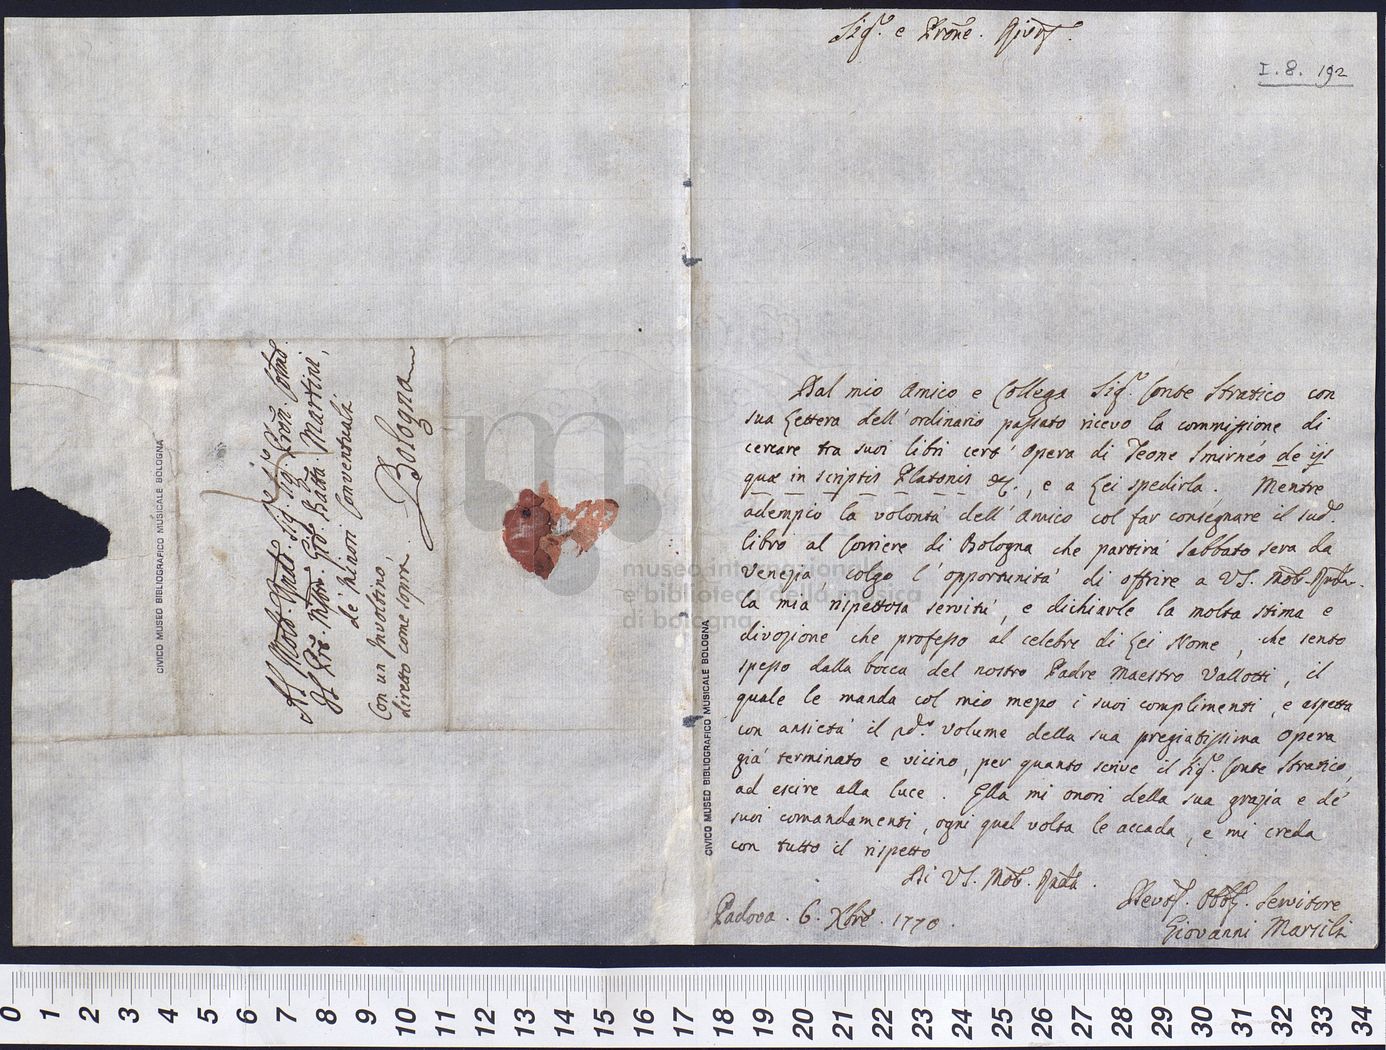 Sig.r e Pron̄e. River.mo
I. 8. 192
Dal mio Amico e Collega Sig.r Conte Stratico con
sua Lettera dell' ordinario passato ricevo la commissione di
cercare tra suoi libri certa Opera di Teone Smirneo de ijs
quæ in scriptis Platonis &c., e a Lei spedirla. Mentre
adempio la volontà dell' Amico col far consegnare il sud.o
libro al Corriere di Bologna che partirà sabbato sera da
Venezia, colgo l' opportunità di offrire a VS. Mol. Rnda.
la mia rispettosa servitù, e dichiarle la molta stima e
divozione che professo al celebre di Lei Nome, che sento
spesso dalla bocca del nostro Padre Maestro Vallotti, il
quale le manda col mio mezzo i suoi complimenti, e aspetta
con ansietà il volume della sua pregiatissima Opera
già terminato e vicino, per quanto scrive il Sig.r Conte Stratico,
ad escire alla luce. Ella mi onori della sua grazia e de'
suoi comandamenti, ogni qual volta le accada, e mi creda
con tutto il rispetto
Di VS. Mol. Rnda.
Padova. 6. Xbre. 1770.
Devot. Obbl. Servitore
Giovanni Marsili
Al Molto Rndo. Sig.r Sig.r Pron. Colmo.
Il Pre. Mstro. Gio. Batta. Martini,
de' Minori Conventuali
Con un Involtino
diretto come sopra.
Bologna
CIVICO MUSEO BIBLIOGRAFICO MUSICALE BOLOGNA
CIVICO MUSEO BIBLIOGRAFICO MUSICALE BOLOGNA
museo internazionale
e biblioteca della musica
di bologna
0 1 2 3 4 5 6 7 8 9 10 11 12 13 14 15 16 17 18 19 20 21 22 23 24 25 26 27 28 29 30 31 32 33 34